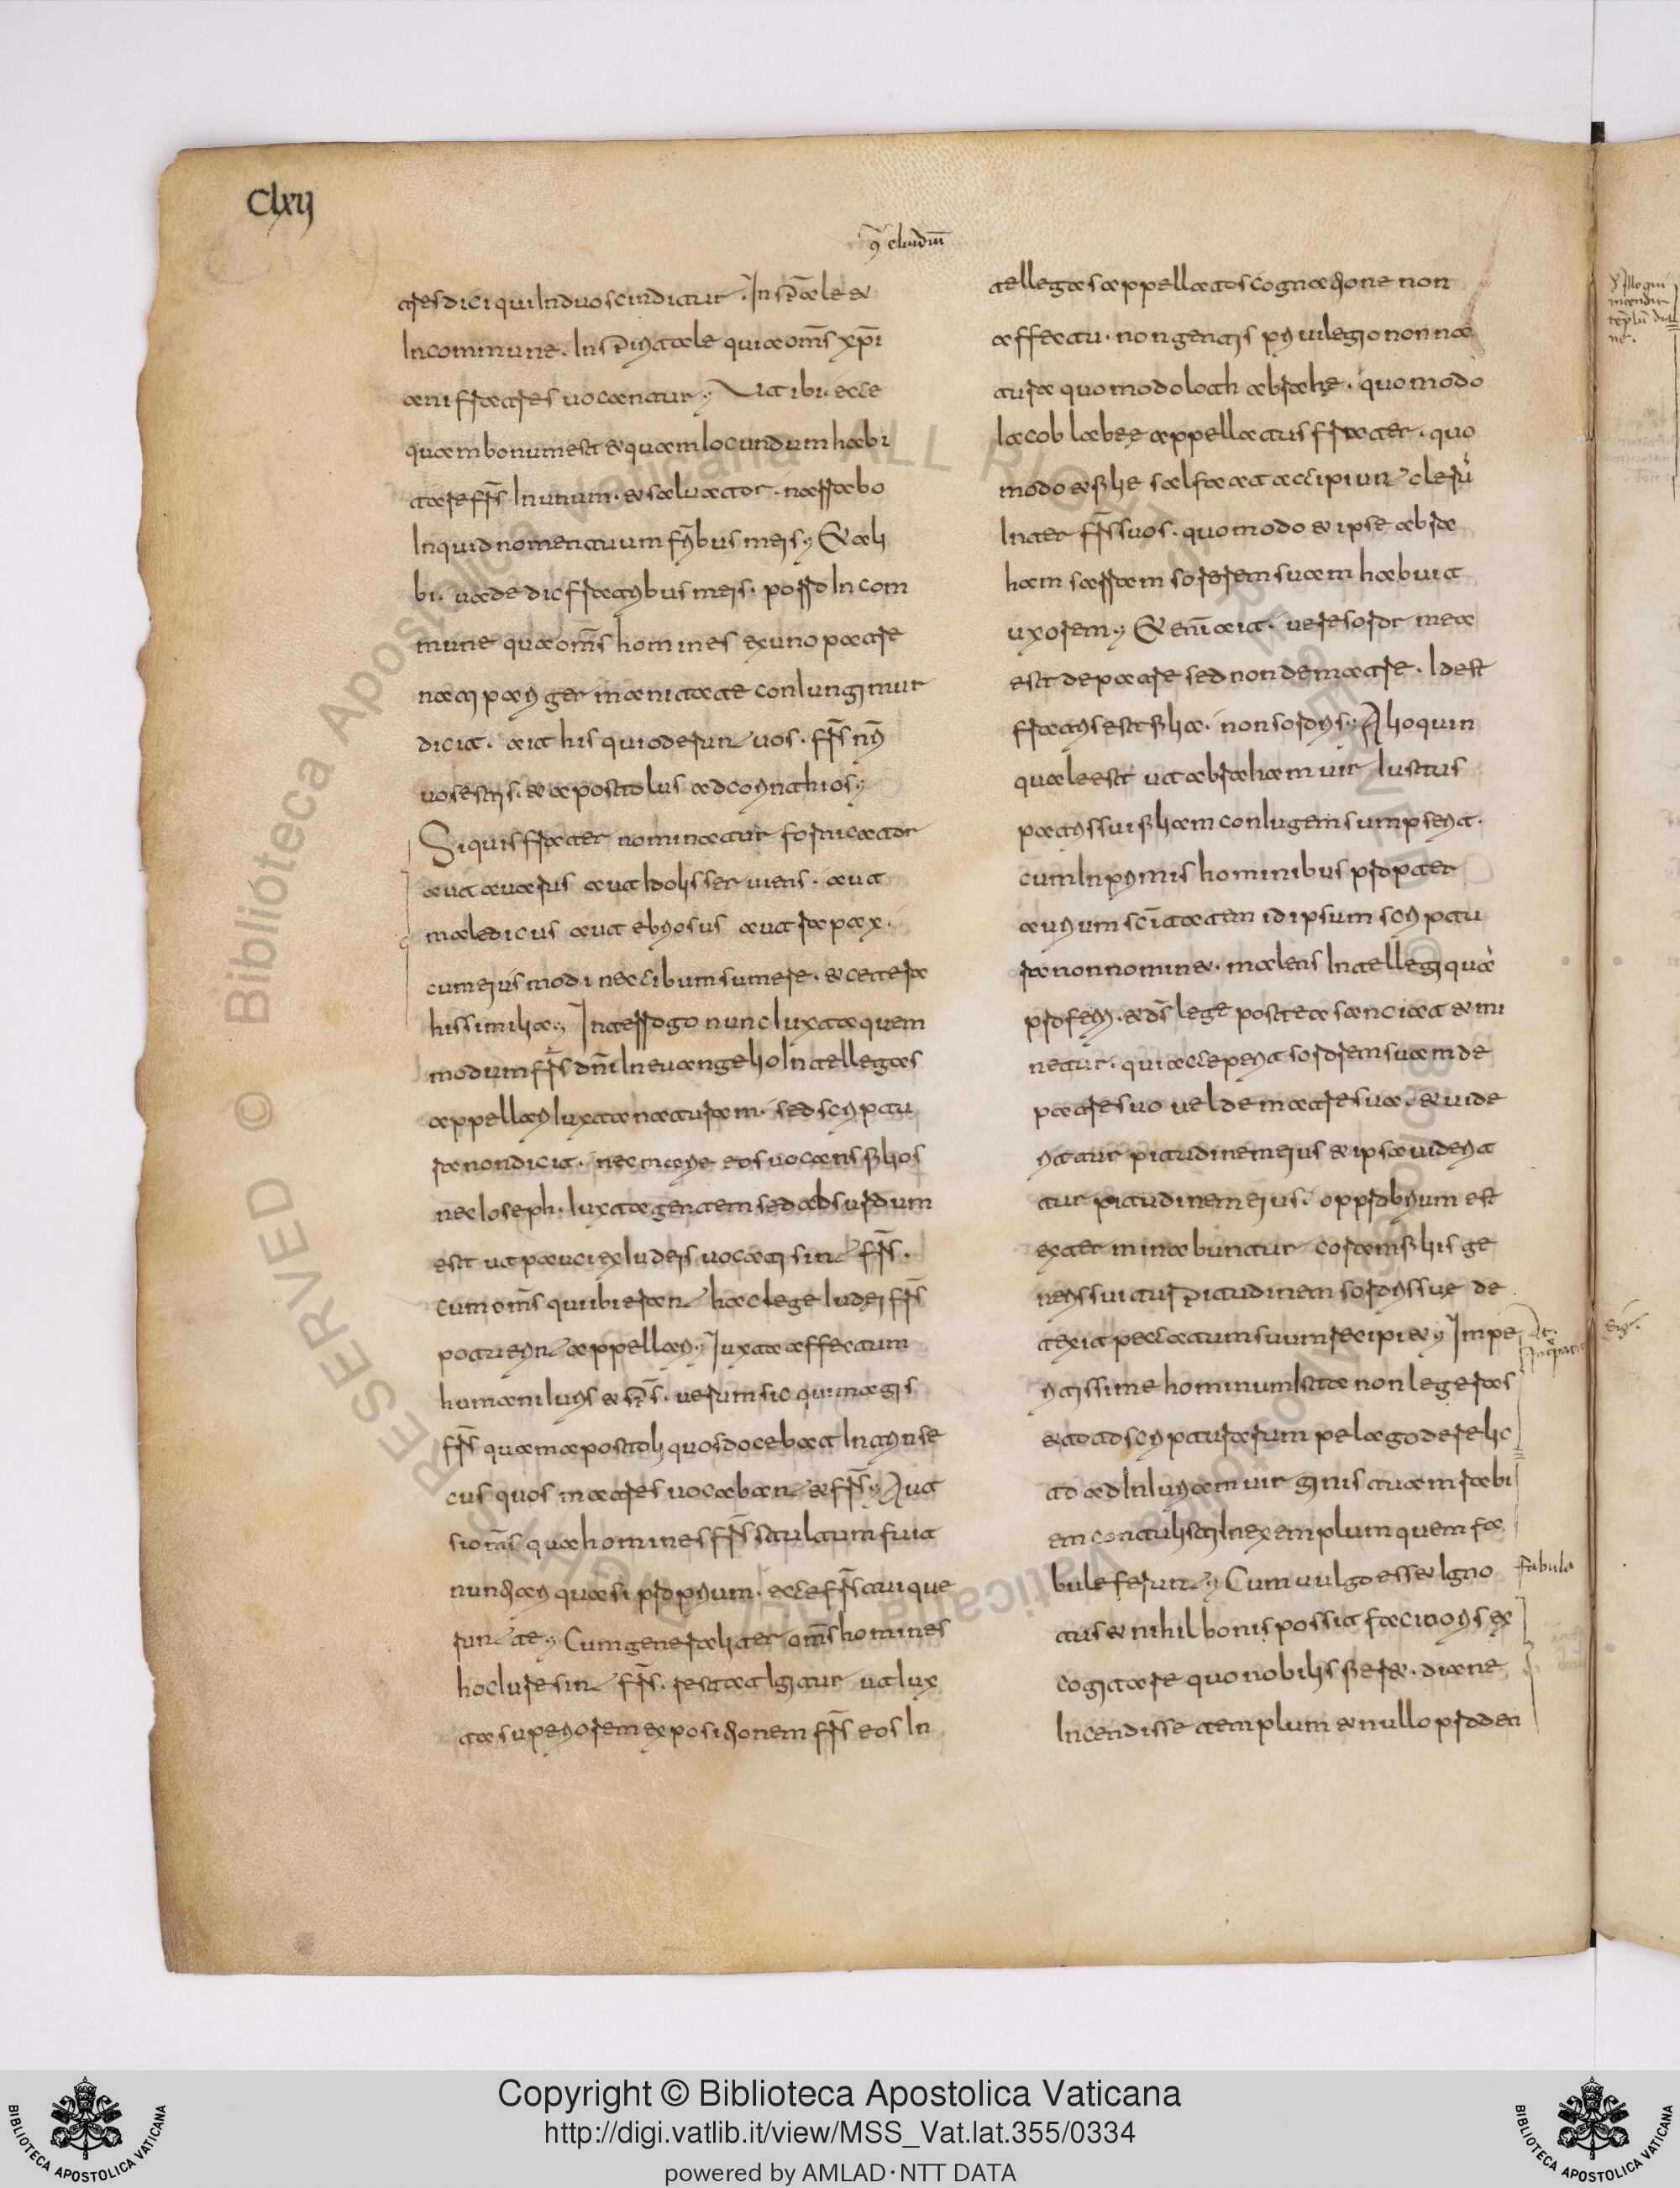 Clxij
ɔ̃ eluidiũ
tres dici qui induos cinditur. In sp̄tale et
incommune. In sp̄iritale quia om̄s xp̄i
ani fratres uocantur; Ut ibi. ecce
quam bonum est et quam iocundum habi
tare fr̄s in unum. et saluator. narrabo
inquid nomen tuum frībus meis; Et ali
bi. uade dic fratribus meis. porro in com
mune qua om̄s homines ex uno patre
nati pari germanitate coniungimur
dicit. ait his qui oderunt uos. fr̄s nr̄i
uos estis. et apostolus ad corinthios;
Si quis frater nominatur fornicator
aut auarus aut idolis seruiens. aut
maledicus aut ebriosus aut rapax.
cum eiusmodi nec cibum sumere. et cetera
his similia; Interrogo nunc iuxta quem
modum fr̄s dn̄i in euangelio intellegas
appellari iuxta naturam. sed scriptu
ra non dicit. nec marie eos uocans filios
nec ioseph. iuxta gentem sed absurdum
est ut pauci ex iudeis uocati sint fr̄s.
cum om̄s qui ibi erant hac lege iudei fr̄s
potuerint appellari; Iuxta affectum
humani iuris et sp̄s. uerum si sic qui magis
fr̄s quam apostoli quos docebat intrinse
cus quos matres uocabant et fr̄s; Aut
si om̄s qua homines fr̄s stultum fuit
nuntiari quasi proprium. ecce fr̄s tui que
runt te; Cum generaliter om̄s homines
hoc iure sint fr̄s. restat igitur ut iux
ta superiorem expositionem fr̄s eos in
tellegas appellatos cognatione non
affectu. non gentis priuilegio non na
tura quomodo loth abrahe. quomodo
iacob labee appellatus frater. quo
modo et filie salfaat accipiunt clerū
inter fr̄s suos. quomodo et ipse abra
ham sarram sororem suam habuit
uxorem; Etenī ait. uere soror mea
est de patre sed non de matre. id est
fratris est filia. non sororis; Alioquin
quale est ut abraham uir iustus
patris sui filiam coniugem sumpserit.
cum in primis hominibus propter
aurium sc̄itatem id ipsum scriptu
ra non nominet. malens intellegi quā
proferri. et ds̄ lege postea sanciat et mi
netur. qui acceperit sororem suam de
patre suo uel de matre sua. et uide
rit turpitudinem eius et ipsa uiderit
turpitudinem eius. opprobrium est
exterminabuntur coram filiis ge
neris sui turpitudinem sororis sue de
texit peccatum suum recipiet; Impe
ritissime hominum ista non legeras
et toto scripturarum pelago derelic
to ad iniuriam uirginis tuam rabi
em contulisti in exemplum quem fa
bule ferunt; Cum uulgo esset igno
tus et nihil boni possit facinoris ex
cogitare quo nobilis fieret. diane
incendisse templum et nullo proden
fabula